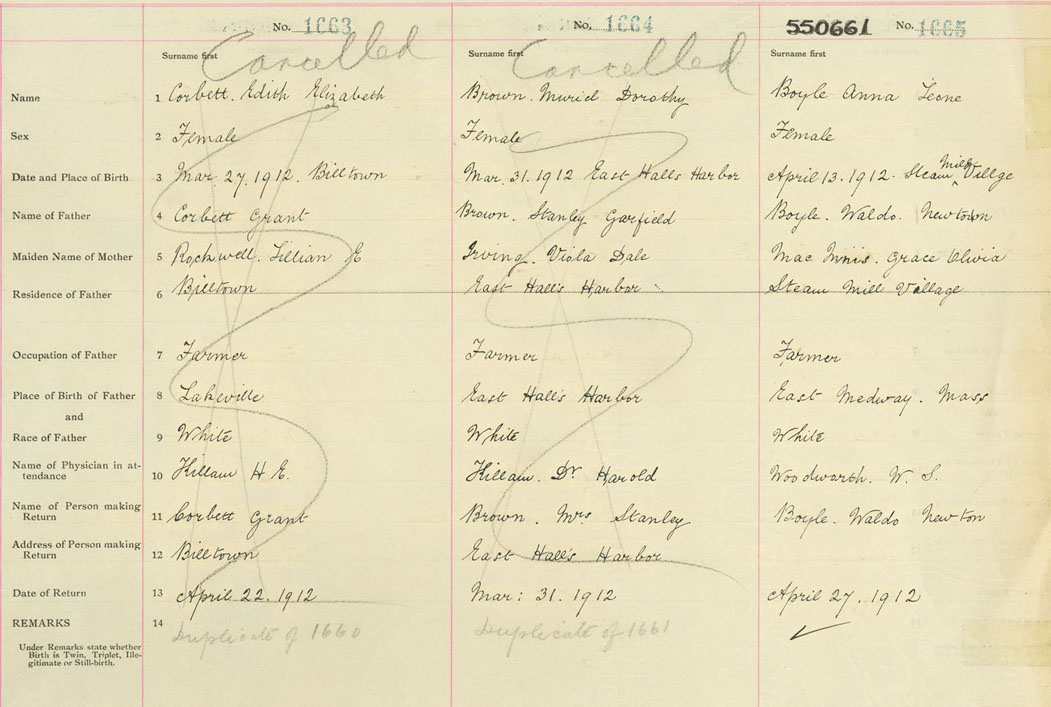 No. 1663 No. 1664 550661 No. 1665
Cancelled Cancelled
Surname first Surname first Surname first
Name 1 Corbett. Edith Elizabeth Brown. Muriel Dorothy Boyle Anna Leone
Sex 2 Female Female Female
Date and Place of Birth 3 Mar. 27. 1912. Billtown Mar. 31. 1912 East Halls Harbor April 13. 1912. Steam Mill Villge
Name of Father 4 Corbett Grant Brown. Stanley Garfield Boyle. Waldo. Newtown
Maiden Name of Mother 5 Rockwell. Lillian E Irving. Viola Dale Mac Innis. Grace Olivia
Residence of Father 6 Billtown East Hall's Harbor Steam Mill Village
Occupation of Father 7 Farmer Farmer Farmer
Place of Birth of Father 8 Lakeville East Hall's Harbor East Medway. Mass
and
Race of Father 9 White White White
Name of Physician in at-
tendance 10 Killam H E. Killam. Dr Harold Woodworth. W. S.
Name of Person making
Return 11 Corbett Grant Brown. Mrs Stanley Boyle. Waldo Newton
Address of Person making
Return 12 Billtown East Hall's Harbor
Date of Return 13 April 22. 1912 Mar: 31. 1912 April 27. 1912
REMARKS 14 Duplicate of 1660 Duplicate of 1661
Under Remarks state whether
Birth is Twin, Triplet, Ille-
gitimate or Still-birth.